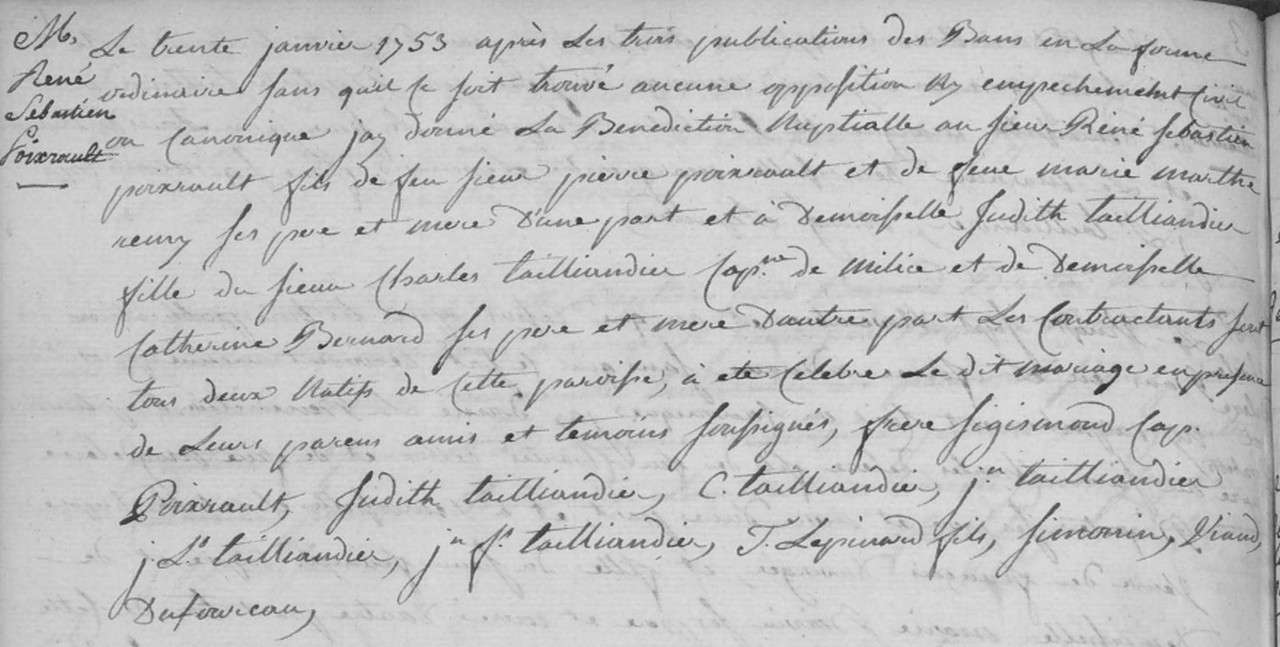 M.
René
Sebastien
Poixrault
Le trente janvier 1753 après Les trois publications des Bans en La forme
ordinaire sans quil se soit trouvé aucune opposition Ny empechement Civil
ou Canonique jay donné La Benediction Nuptialle au sieur Réné Sebastien
poixrault fils de feu sieur pierre poixrault et de feue marie marthe
remy ses pere et mere D'une part et à Demoiselle Judith tailliandier
fille du sieur Charles tailliandier Cap.ne de Milice et de Demoiselle
Catherine Bernard ses pere et mere Dautre part Les Contractants sont
tous deux Natifs de Cette paroisse, à eté Celebré Le dit mariage en presence
de Leurs parens amis et temoins soussignés, frere Sigismond Cap.
Poixrault, Judith tailliandier, C. tailliandier, j.n tailliandier
j. L.s tailliandier, j.n f.s tailliandier, T. Lepinard fils, Simonin, Viaud,